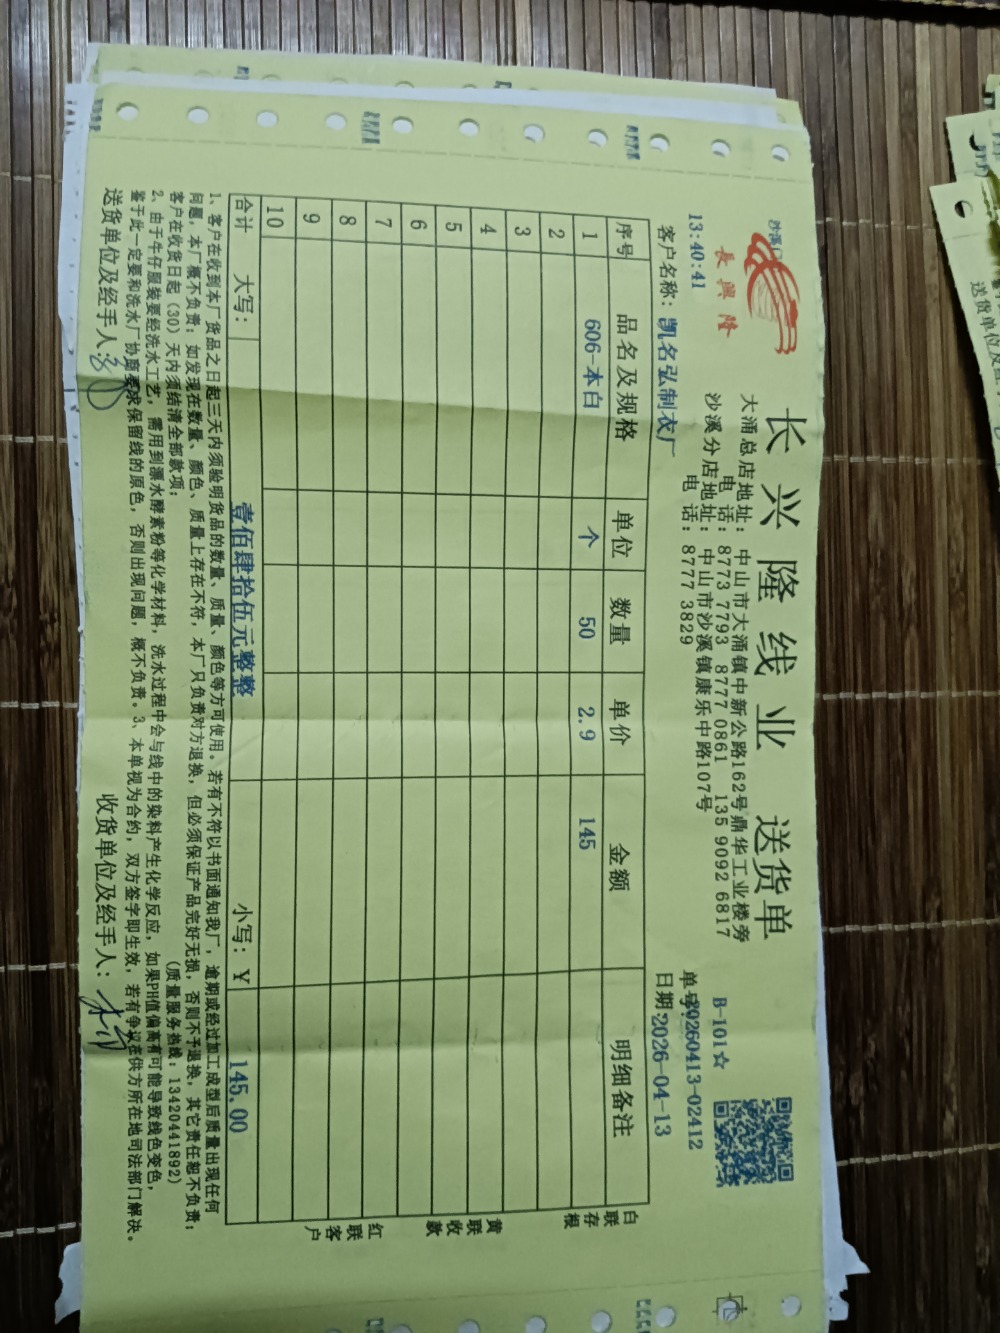 长兴隆线业 送货单
沙溪
長興隆
大涌总店地址: 中山市大涌镇中新公路162号鼎华工业楼旁
电 话: 8773 7793 8777 0861 135 9092 6817
沙溪分店地址: 中山市沙溪镇康乐中路107号
电 话: 8777 3829
B-101☆
13:40:41
单号:20260413-02412
客户名称: 凯名弘制衣厂
日期:2026-04-13
序号 品名及规格 单位 数量 单价 金额 明细备注
1 606-本白 个 50 2.9 145
2
3
4
5
6
7
8
9
10
合计 大写: 壹佰肆拾伍元整整 小写: ¥ 145.00
白联存根
黄联收款
红联客户
1、客户在收到本厂货品之日起三天内须验明货品的数量、质量、颜色等方可使用。若有不符以书面通知我厂,逾期或经过加工成型后质量出现任何
问题,本厂概不负责;如发现在数量、颜色、质量上存在不符,本厂只负责对方退换,但必须保证产品完好无损,否则不予退换,其它责任恕不负责;
客户在收货日起(30)天内须结清全部款项; (质量服务热线:13420441892)
2、由于牛仔服装要经洗水工艺,需用到漂水酵素粉等化学材料,洗水过程中会与线中的染料产生化学反应,如果PH值偏高有可能导致线色变色,
鉴于此一定要和洗水厂协商要求保留线的原色,否则出现问题,概不负责。3、本单视为合约,双方签字即生效,若有争议在供方所在地司法部门解决。
送货单位及经手人: 收货单位及经手人:
送货单位及